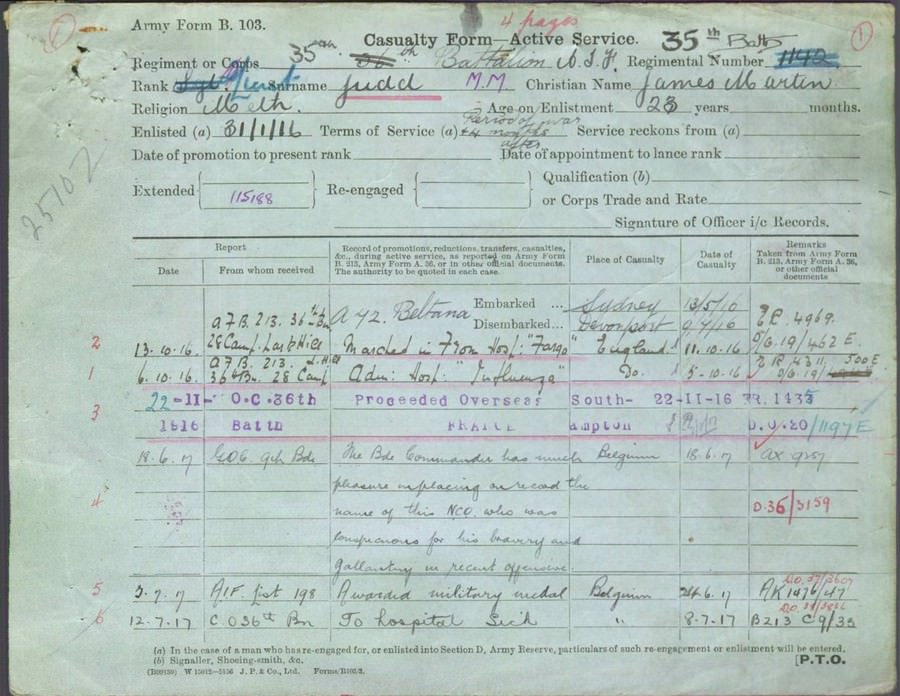 Army Form B. 103.
4 pages
1
Casualty Form—Active Service.
35th Battn
1
Regiment or Corps 35th 36th Battalion A.I.F. Regimental Number 1142
Rank Sgt Lieut Surname Judd M.M. Christian Name James Martin
Religion Meth. Age on Enlistment 23 years months.
Enlisted (a) 31/1/16 Terms of Service (a) Period of war +4 months after Service reckons from (a)
Date of promotion to present rank Date of appointment to lance rank
Extended 115188 Re-engaged Qualification (b)
or Corps Trade and Rate
Signature of Officer i/c Records.
25102
Report
Date From whom received
Record of promotions, reductions, transfers, casualties, &c., during active service, as reported on Army Form B. 213, Army Form A. 36, or in other official documents. The authority to be quoted in each case.
Place of Casualty
Date of Casualty
Remarks Taken from Army Form B. 213, Army Form A. 36, or other official documents
A 72. Beltana Embarked ... Sydney 13/5/16
Disembarked... Devonport 9/7/16
2 13.10.16. A F B. 213. 36th Bn 28 Camp. Larkhill Marched in From Hosp: "Fargo" England 11.10.16 4969. 19/462 E
1 6.10.16. A F B. 213. 36th Bn. 28 Camp Adm: Hosp: "Influenza" Do. 5-10-16 4311. 19/ 500 E
3 22-11- O.C. 36th Proceeded Overseas South- 22-11-16 1435
1916 Battn FRANCE ampton D.O.20/1197 E
18.6.17 G.O.C. 9th Bde The Bde Commander has much Belgium 18.6.17
pleasure in placing on record the
4 name of this N.C.O. who was D.36/3159
conspicuous for his bravery and
gallantry in recent offensive.
5 3.7.17 A.I.F. List 198 Awarded military medal Belgium 24.6.17 AK1476/47 D.O. 37/3607
6 12.7.17 C O 36th Bn To hospital Sick " 8.7.17 B213 C9/33
(a) In the case of a man who has re-engaged for, or enlisted into Section D, Army Reserve, particulars of such re-engagement or enlistment will be entered.
(b) Signaller, Shoeing-smith, &c.
[P.T.O.
W 15012—5156 J. P. & Co., Ltd. Forms/B103/2.